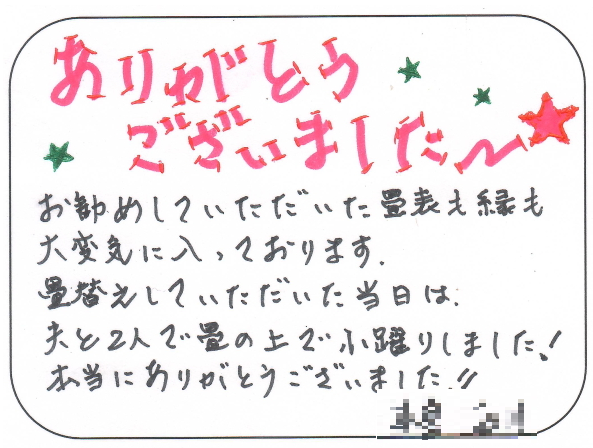 ありがとう
ございました～
お勧めしていただいた畳表も縁も
大変気に入っております.
畳替えしていただいた当日は.
夫と2人で畳の上で小躍りしました!
本当にありがとうございました!!